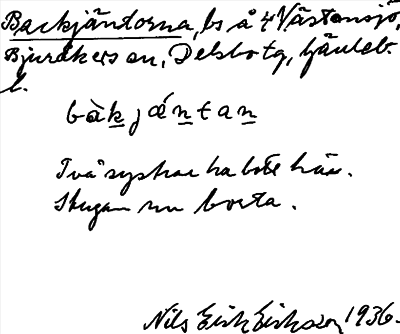 Backjäntorna, bs å 4 Västansjö,
Bjuråkers sn, Delsbo tg, Gävleb.
l.
bàk̲ jǽn̲tan̲
Två systrar ha bott här.
Stugan nu borta.
Nils Erik Eriksson 1936.